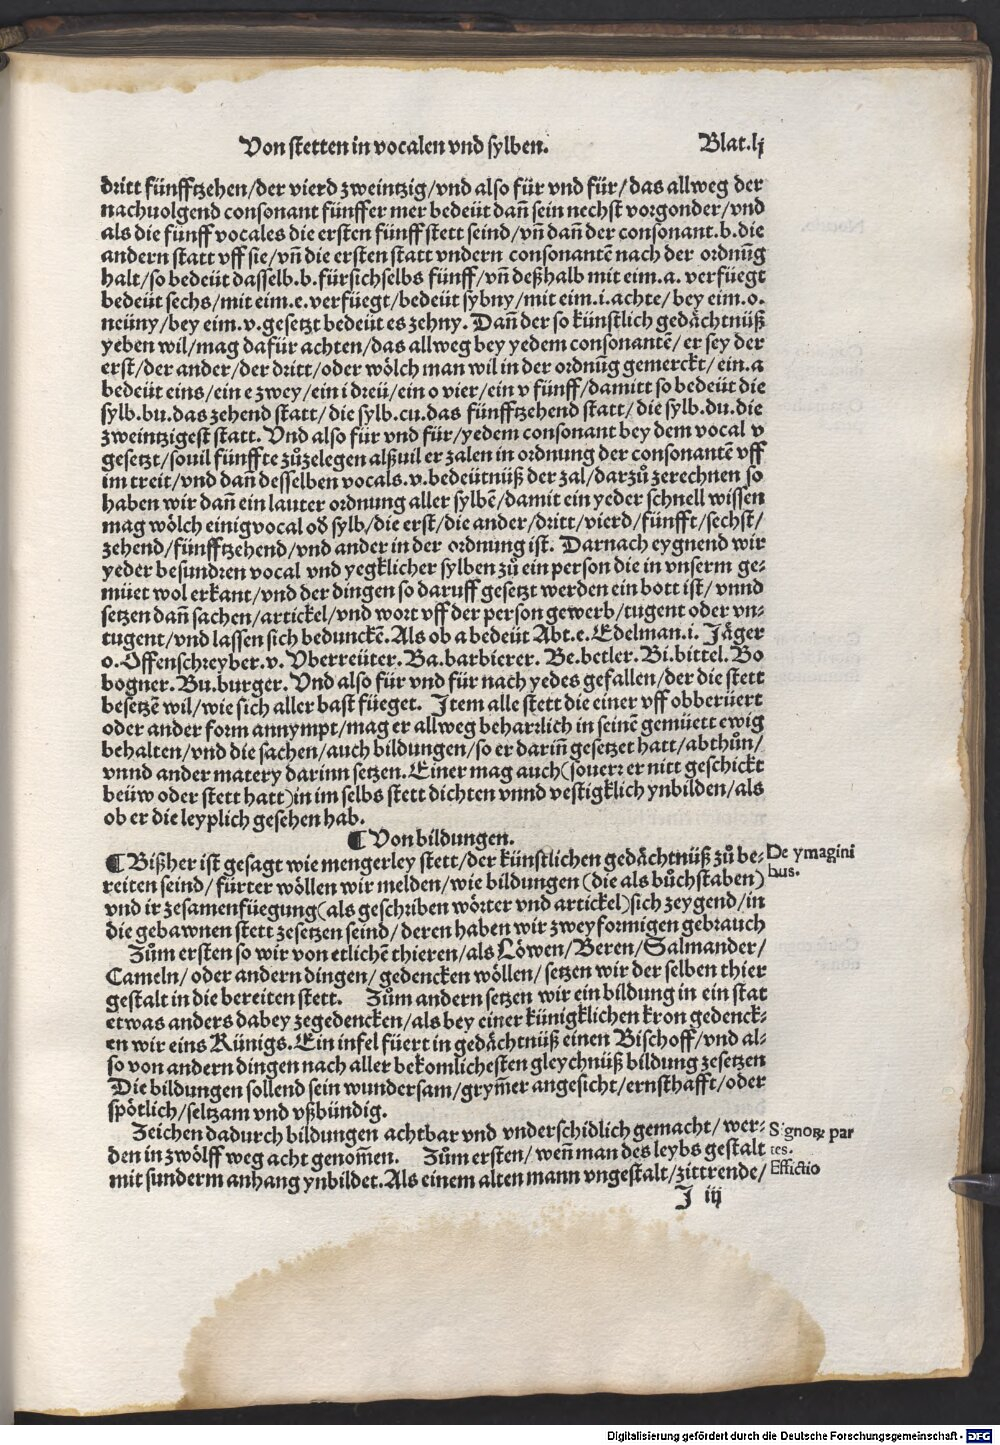 Von stetten in vocalen vnd sylben. Blat.lj
dritt fünfftzehen/der vierd zweintzig/vnd also für vnd für/das allweg der
nachuolgend consonant fünffer mer bedeüt dañ sein nechst vorgonder/vnd
als die fünff vocales die ersten fünff stett seind/vñ dañ der consonant.b.die
andern statt vff sie/vñ die ersten statt vndern consonantẽ nach der ordnũg
halt/so bedeüt dasselb.b.fürsichselbs fünff/vñ deßhalb mit eim.a. verfüegt
bedeüt sechs/mit eim.e.verfüegt/bedeüt sybny/mit eim.i.achte/bey eim.o.
neüny/bey eim.v.gesetzt bedeüt es zehny. Dañ der so künstlich gedächtnüß
yeben wil/mag dafür achten/das allweg bey yedem consonantẽ/er sey der
erst/der ander/der dritt/oder wölch man wil in der ordnũg gemerckt/ein.a
bedeüt eins/ein e zwey/ein i dreü/ein o vier/ein v fünff/damitt so bedeüt die
sylb.bu.das zehend statt/die sylb.cu.das fünfftzehend statt/die sylb.du.die
zweintzigest statt. Vnd also für vnd für/yedem consonant bey dem vocal v
gesetzt/souil fünffte zůzelegen alßuil er zalen in ordnung der consonantẽ vff
im treit/vnd dañ desselben vocals.v.bedeütnüß der zal/darzů zerechnen so
haben wir dañ ein lauter ordnung aller sylbẽ/damit ein yeder schnell wissen
mag wölch einig vocal od sylb/die erst/die ander/dritt/vierd/fünfft/sechst/
zehend/fünfftzehend/vnd ander in der ordnung ist. Darnach eygnend wir
yeder besundren vocal vnd yegklicher sylben zů ein person die in vnserm ge⸗
müet wol erkant/vnd der dingen so daruff gesetzt werden ein bott ist/vnnd
setzen dañ sachen/artickel/vnd wort vff der person gewerb/tugent oder vn⸗
tugent/vnd lassen sich bedunckẽ.Als ob a bedeüt Abt.e.Edelman.i. Jäger
o.Offenschreyber.v. Vberreüter. Ba.barbierer. Be.betler. Bi.bittel. Bo
bogner. Bu.burger. Vnd also für vnd für nach yedes gefallen/der die stett
besetzẽ wil/wie sich aller bast füeget. Item alle stett die einer vff obberüert
oder ander form annympt/mag er allweg beharrlich in seinẽ gemüett ewig
behalten/vnd die sachen/auch bildungen/so er dariñ gesetzet hatt/abthůn/
vnnd ander matery darinn setzen. Einer mag auch(souerr er nitt geschickt
beüw oder stett hatt)in im selbs stett dichten vnnd vestigklich ynbilden/als
ob er die leyplich gesehen hab.
¶ Von bildungen.
¶ Bißher ist gesagt wie mengerley stett/der künstlichen gedächtnüß zů be⸗
reiten seind/fürter wöllen wir melden/wie bildungen (die als bůchstaben)
vnd ir zesamenfüegung(als geschriben wörter vnd artickel)sich zeygend/in
die gebawnen stett zesetzen seind/deren haben wir zwey formigen gebrauch
Zům ersten so wir von etlichẽ thieren/als Löwen/Beren/Salmander/
Cameln/oder andern dingen/gedencken wöllen/setzen wir der selben thier
gestalt in die bereiten stett. Zům andern setzen wir ein bildung in ein stat
etwas anders dabey zegedencken/als bey einer künigklichen kron gedenck⸗
en wir eins Künigs. Ein infel füert in gedächtnüß einen Bischoff/vnd al⸗
so von andern dingen nach aller bekomlichesten gleychnüß bildung zesetzen
Die bildungen sollend sein wundersam/grym̃er angesicht/ernsthafft/oder
spötlich/seltzam vnd vßbündig.
Zeichen dadurch bildungen achtbar vnd vnderschidlich gemacht/wer⸗
den in zwölff weg acht genom̃en. Zům ersten/weñ man des leybs gestalt
mit sunderm anhang ynbildet. Als einem alten mann vngestalt/zittrende/
J iij
De ymagini
bus.
Signoꝝ par
tes.
Effictio
Digitalisierung gefördert durch die Deutsche Forschungsgemeinschaft - DFG